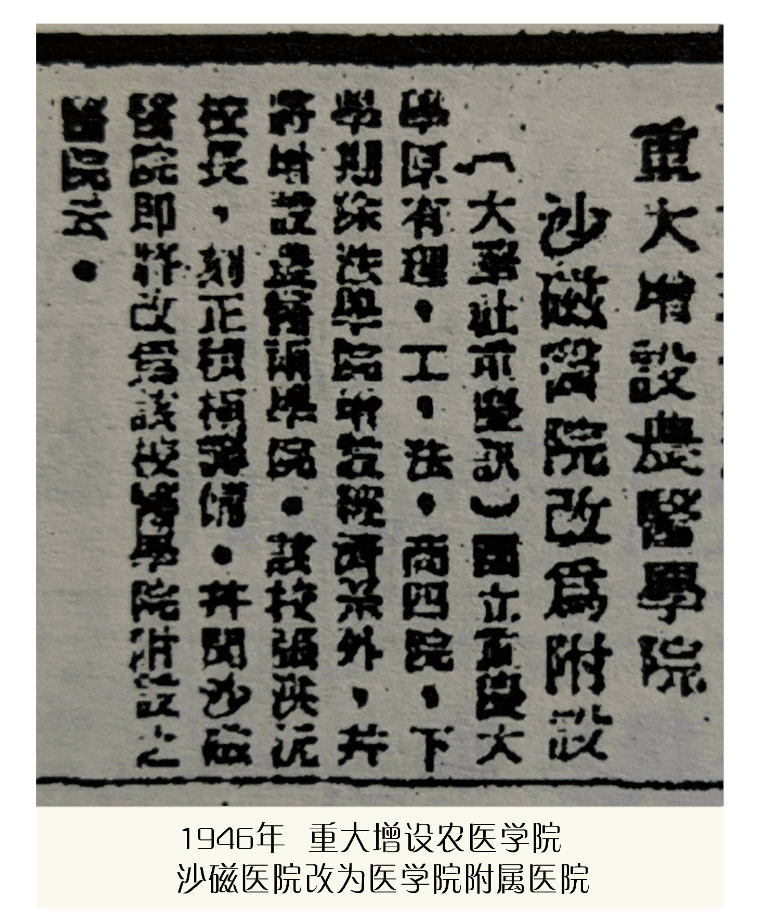 重大增設農醫學院
沙磁醫院改爲附設
（大學社市學訊）國立重慶大
學原有理，工，法，商四院，下
學期除法學院增設經濟系外，并
將增設農醫兩學院。該校張洪沅
校長，刻正積極籌備。并聞沙磁
醫院即將改爲該校醫學院附設之
醫院云。
1946年 重大增设农医学院
沙磁医院改为医学院附属医院